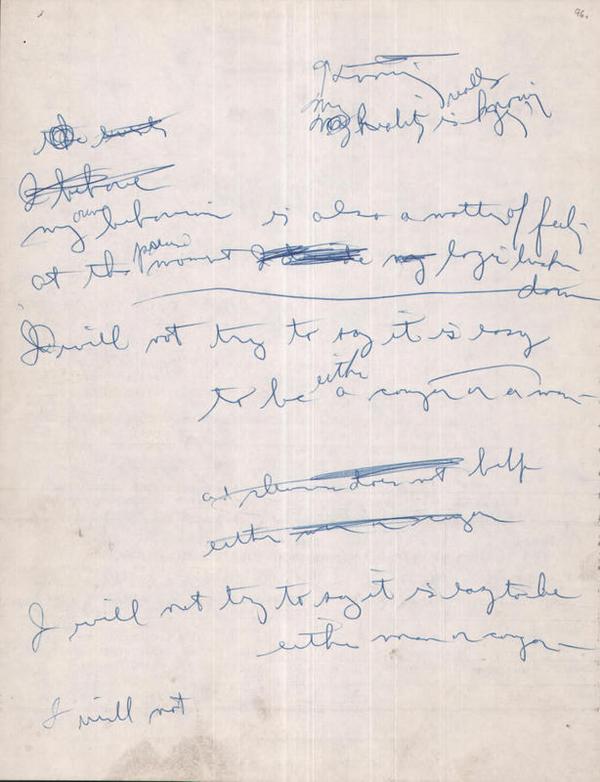 96.
my
my reality is
I behave
own
my behavior is also a matter of feeling
at the moment my logic breaks
down
I will not try to say it is easy
either
to be a cougar or a man—
does not help
either man or cougar
I will not try to say it is easy to be
either man or cougar—
I will not